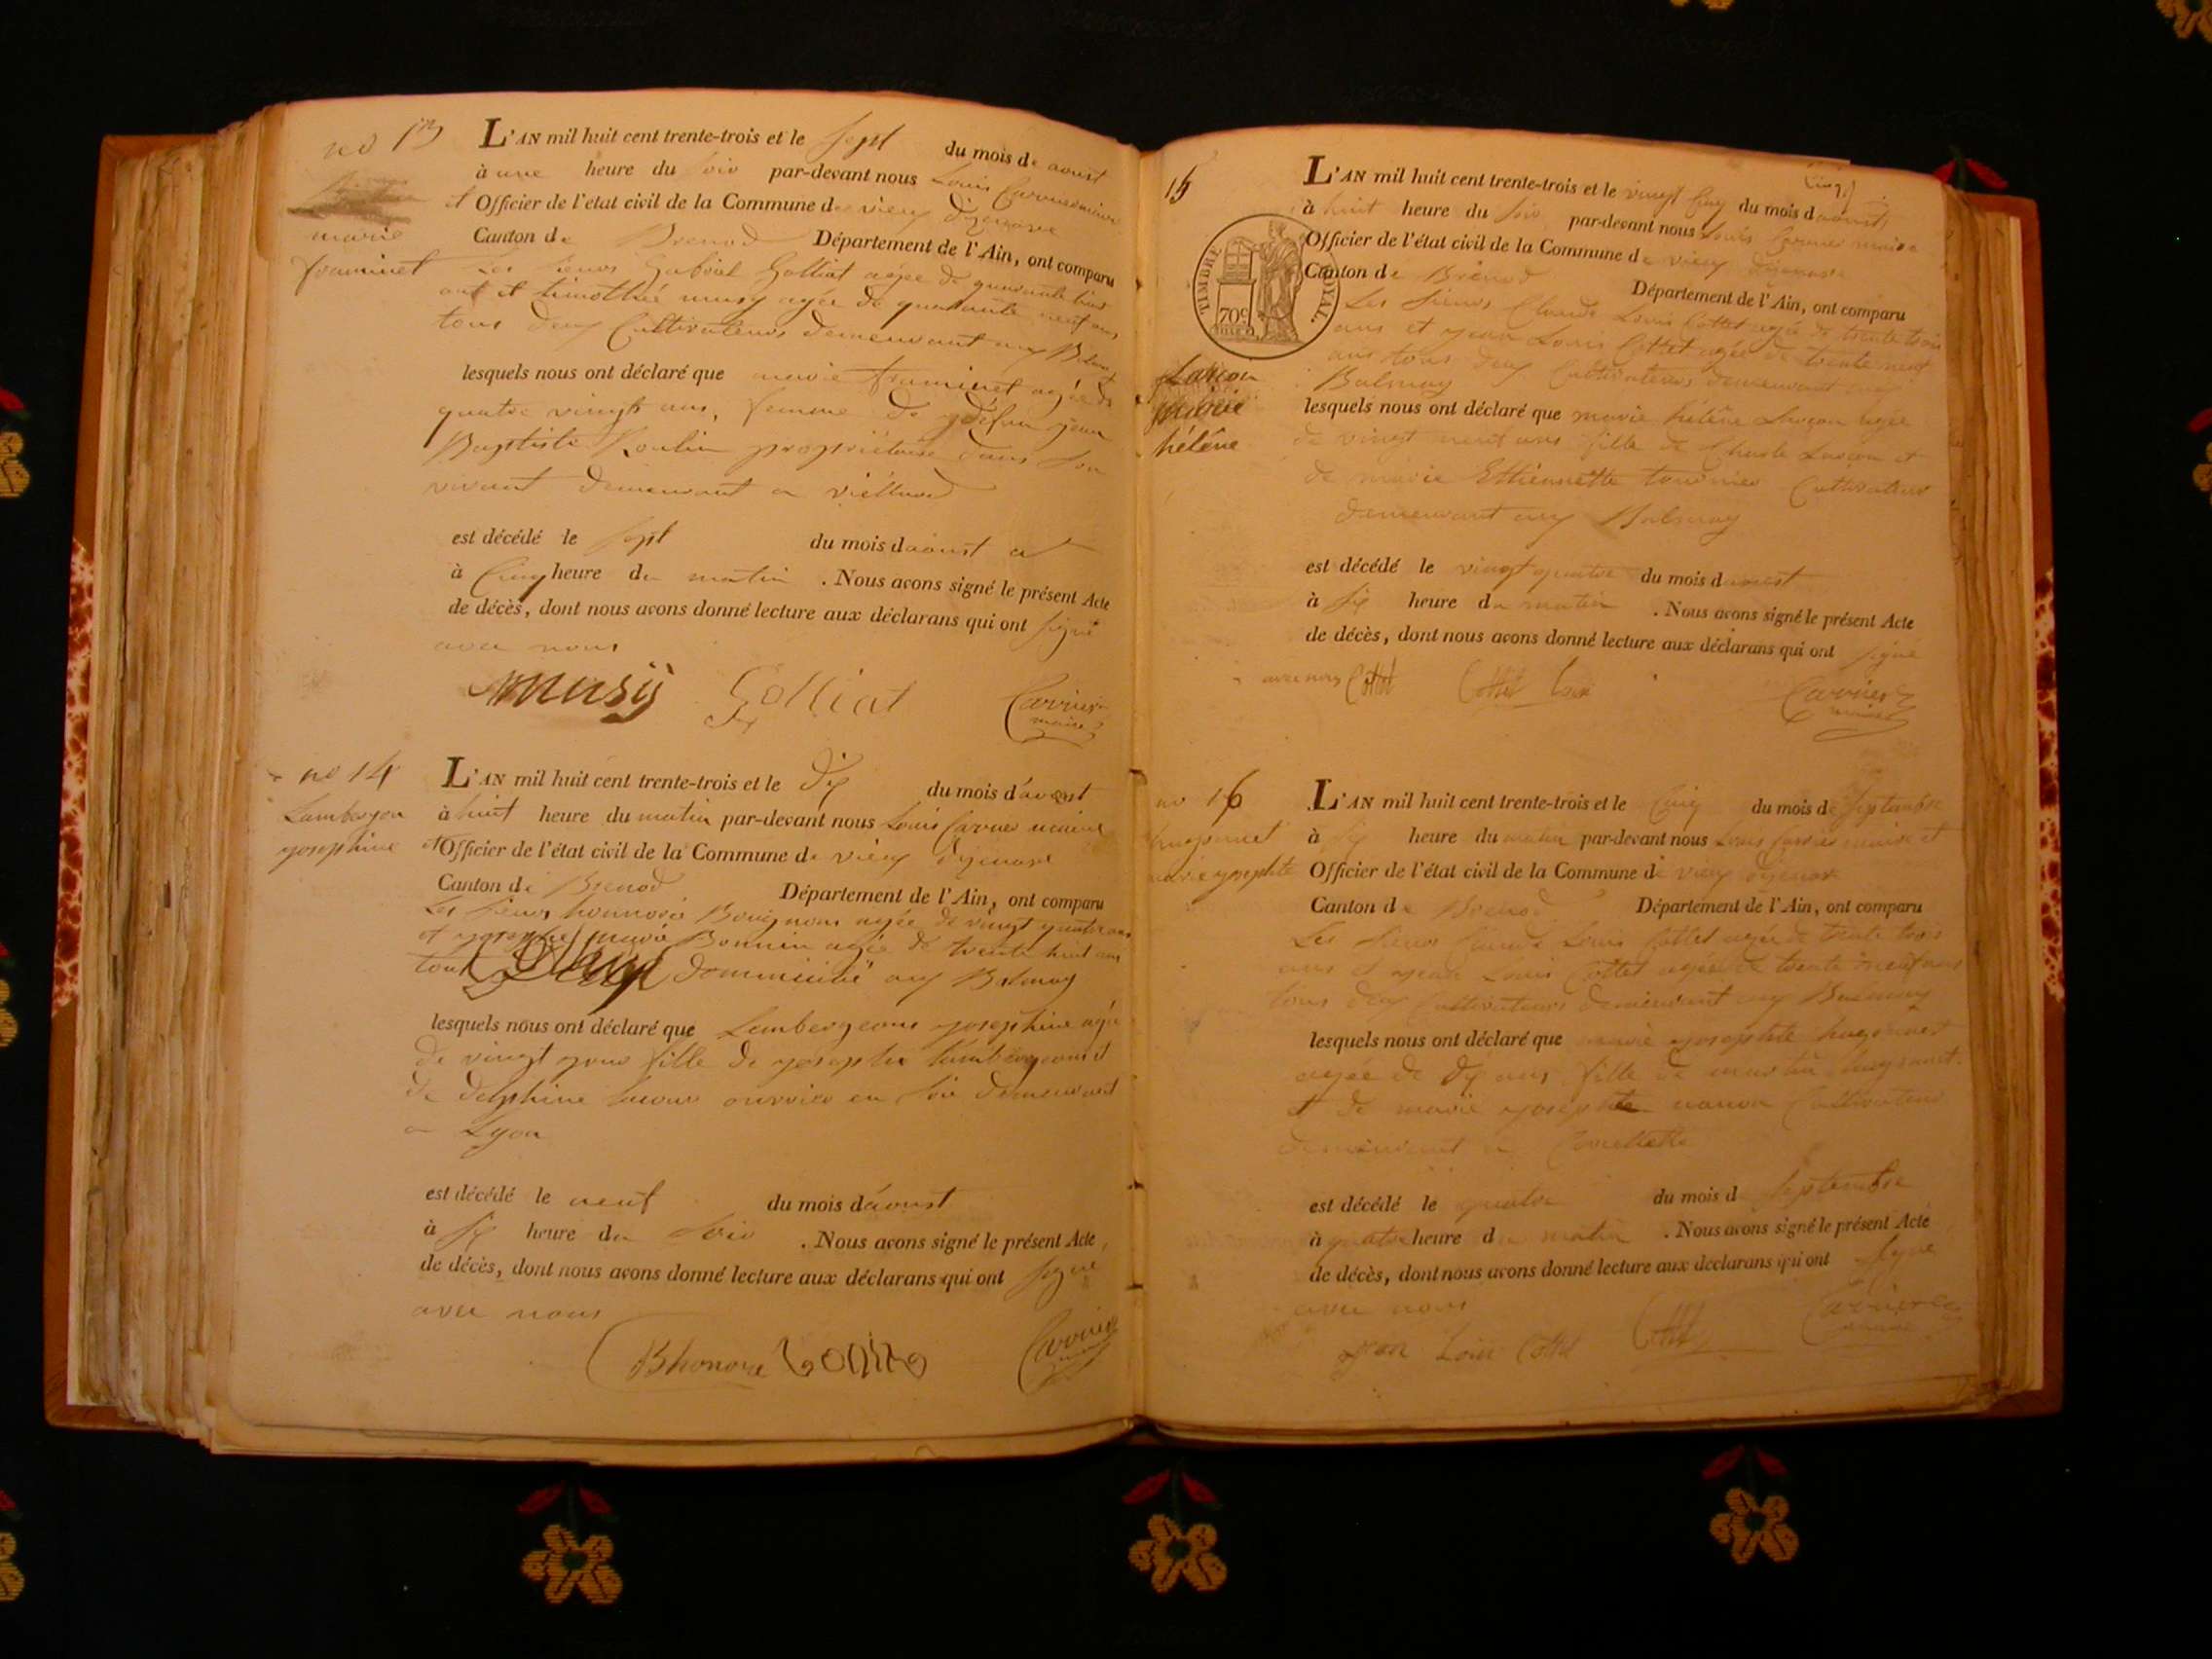 no 13
marie
framinet
L'AN mil huit cent trente-trois et le sept du mois de aoust
à une heure du soir par-devant nous Louis Carrier maire
et Officier de l'etat civil de la Commune de vieux d'izenave
Canton de Brenod Département de l'Ain, ont comparu
Les sieurs Gabriel Golliat agée de quarante trois
ans et timothée musy agée de quarante neuf ans,
tous deux Cultivateurs demeurant aux Balmay
lesquels nous ont déclaré que marie framinet agée de
quatre vingts ans, femme de défun jean
Baptiste Roulin propriétaire dans son
vivant demeurant a viellard
est décédé le sept du mois daoust
à Cinq heure du matin . Nous avons signé le présent Acte
de décès, dont nous avons donné lecture aux déclarans qui ont signé
avec nous
musy Golliat Carrier
maire
no 14
Lambergon
yosephine
L'AN mil huit cent trente-trois et le dix du mois d'aoust
à huit heure du matin par-devant nous Louis Carrier maire
et Officier de l'état civil de la Commune de vieux d'izenave
Canton de Brenod Département de l'Ain, ont comparu
Les sieurs honnoré agée de vingt quatre ans
et marie Bonnin agée de trente huit ans
tous Deux aux Balmay
lesquels nous ont déclaré que Lambergeons yosephine agée
de vingt jour fille de yosephe
de delphine ouvrier en soie demeurant
a Lyon
est décédé le neuf du mois d'aoust
à six heure du soir . Nous avons signé le présent Acte
de décès, dont nous avons donné lecture aux déclarans qui ont signé
avec nous
Bhonoré Carrier
15
TIMBRE ROYAL.
70c
Larçon
marie
hélène
L'AN mil huit cent trente-trois et le vingt Cinq du mois daoust
à huit heure du soir par-devant nous Louis Carrier maire
Officier de l'état civil de la Commune de vieux d'izenave
Canton de Brenod Département de l'Ain, ont comparu
Les sieurs Claude Louis Cottet agée de trente trois
ans et yean Louis Cottet agée de trente neuf
ans tous deux Cultivateurs demeurant aux
Balmay
lesquels nous ont déclaré que marie hélène Larçon agée
de vingt neuf ans fille de Charle Larçon et
de marie Ettiennette tournier Cultivateur
demeurant aux Balmay
est décédé le vingt quatre du mois daoust
à six heure du matin . Nous avons signé le présent Acte
de décès, dont nous avons donné lecture aux déclarans qui ont signé
avec nous Cottet Cottet Louis Carrier
maire
no 16
hugonnet
marie yosephte
L'AN mil huit cent trente-trois et le Cinq du mois de septembre
à six heure du matin par-devant nous Louis Carrier maire et
Officier de l'état civil de la Commune de vieux d'izenave
Canton de Brenod Département de l'Ain, ont comparu
Les sieurs Claude Louis Cottet agée de trente trois
ans et yean Louis Cottet agée de trente neuf ans
tous deux Cultivateurs demeurant aux Balmay
lesquels nous ont déclaré que marie yosephte hugonnet
agée de dix ans fille de martin hugonnet
et de marie yosephte Cultivateur
demeurant a
est décédé le quatre du mois d septembre
à quatre heure du matin . Nous avons signé le présent Acte
de décès, dont nous avons donné lecture aux déclarans qui ont signé
avec nous
yean Louis Cottet Cottet Carrier